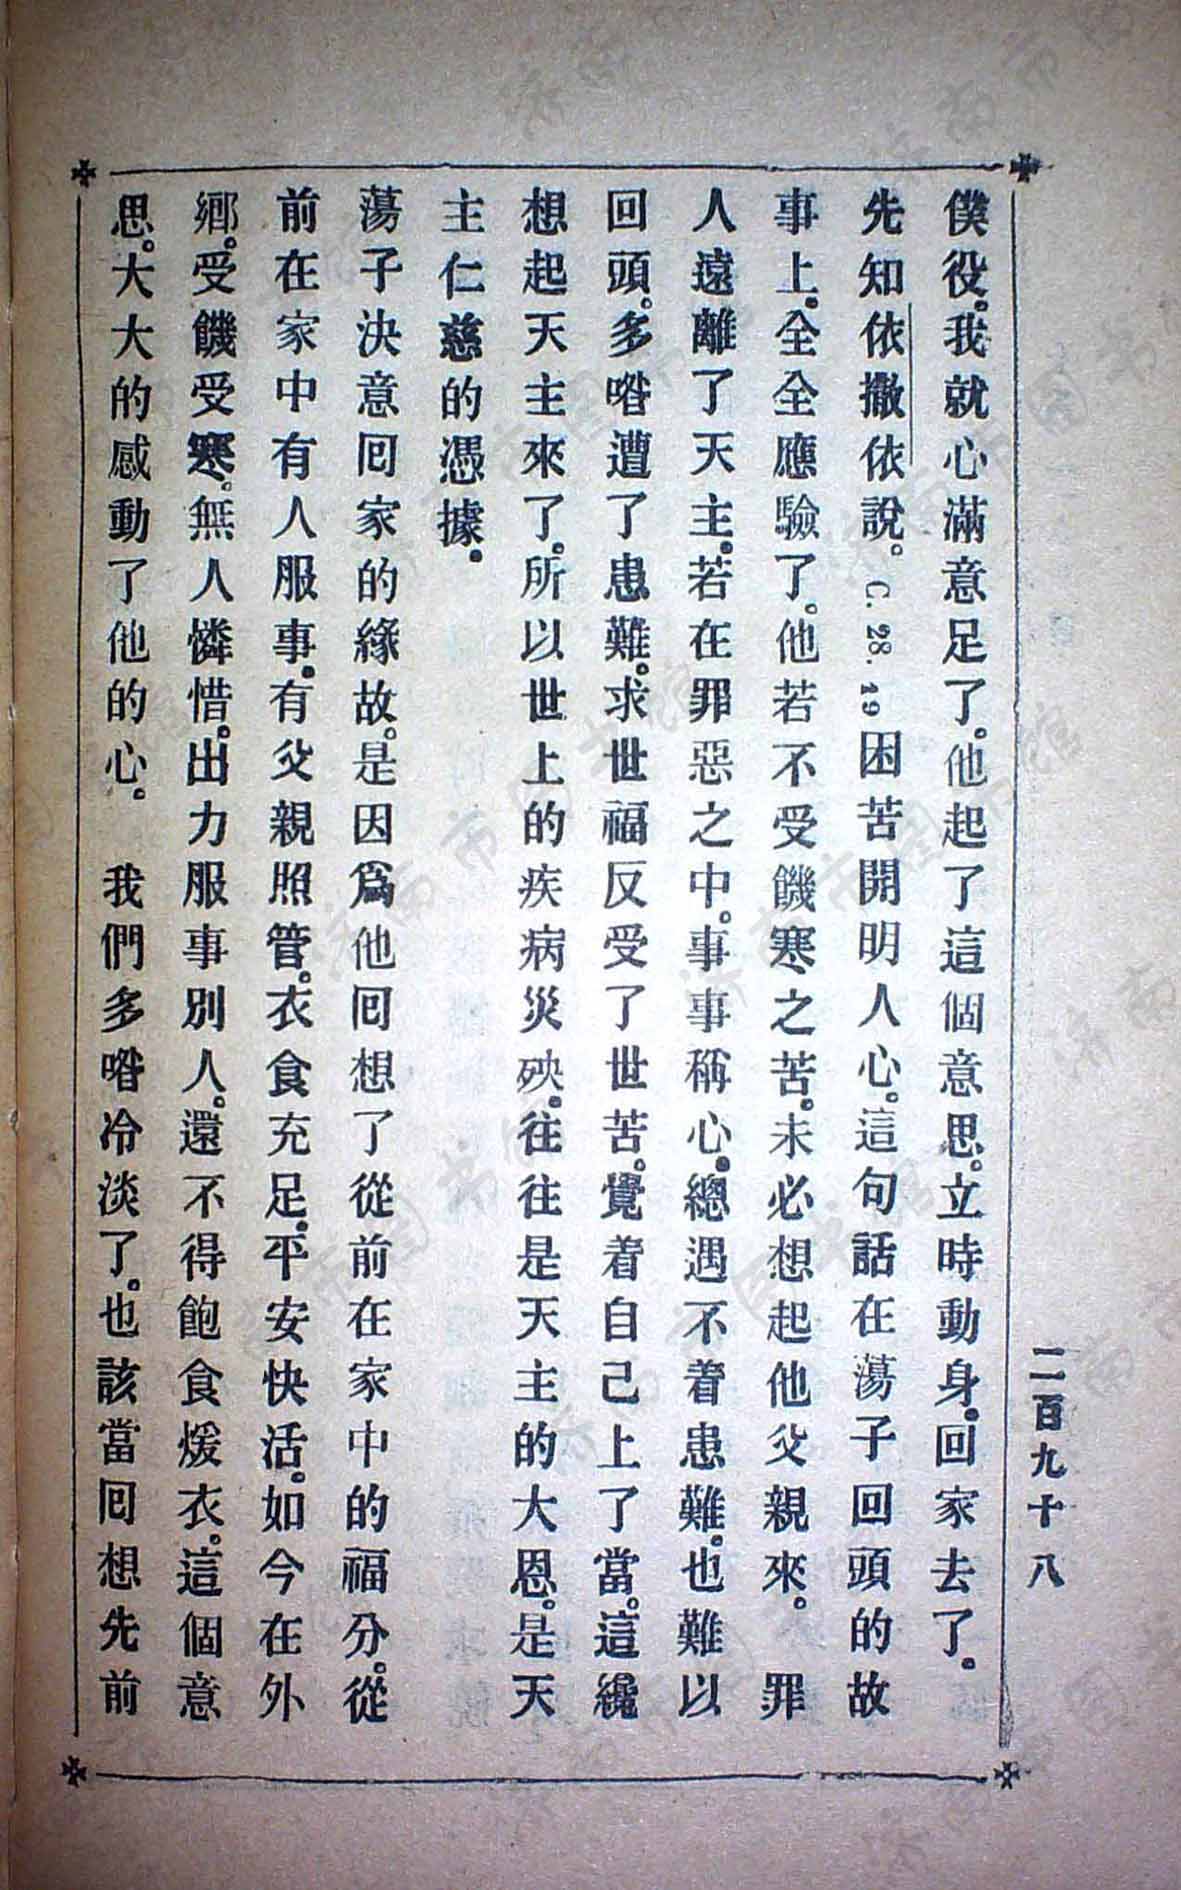 二百九十八
僕役。我就心滿意足了。他起了這個意思。立時動身。回家去了。
先知依撒依說。C. 28. 19 困苦開明人心。這句話在蕩子回頭的故
事上。全全應驗了。他若不受饑寒之苦。未必想起他父親來。 罪
人遠離了天主。若在罪惡之中。事事稱心。總遇不着患難。也難以
回頭。多喒遭了患難。求世福反受了世苦。覺着自己上了當。這纔
想起天主來了。所以世上的疾病災殃。往往是天主的大恩。是天
主仁慈的憑據。
蕩子決意囘家的緣故。是因爲他囘想了從前在家中的福分。從
前在家中有人服事。有父親照管。衣食充足。平安快活。如今在外
鄉。受饑受寒。無人憐惜。出力服事別人。還不得飽食煖衣。這個意
思。大大的感動了他的心。 我們多喒冷淡了。也該當囘想先前